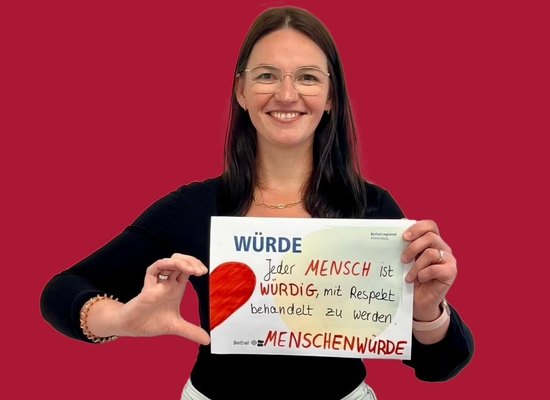 WÜRDE
Bethel.regional
Jeder MENSCH ist
WÜRDiG, mit Respekt
behandelt zu werden.
Bethel
MENSCHENWÜRDE